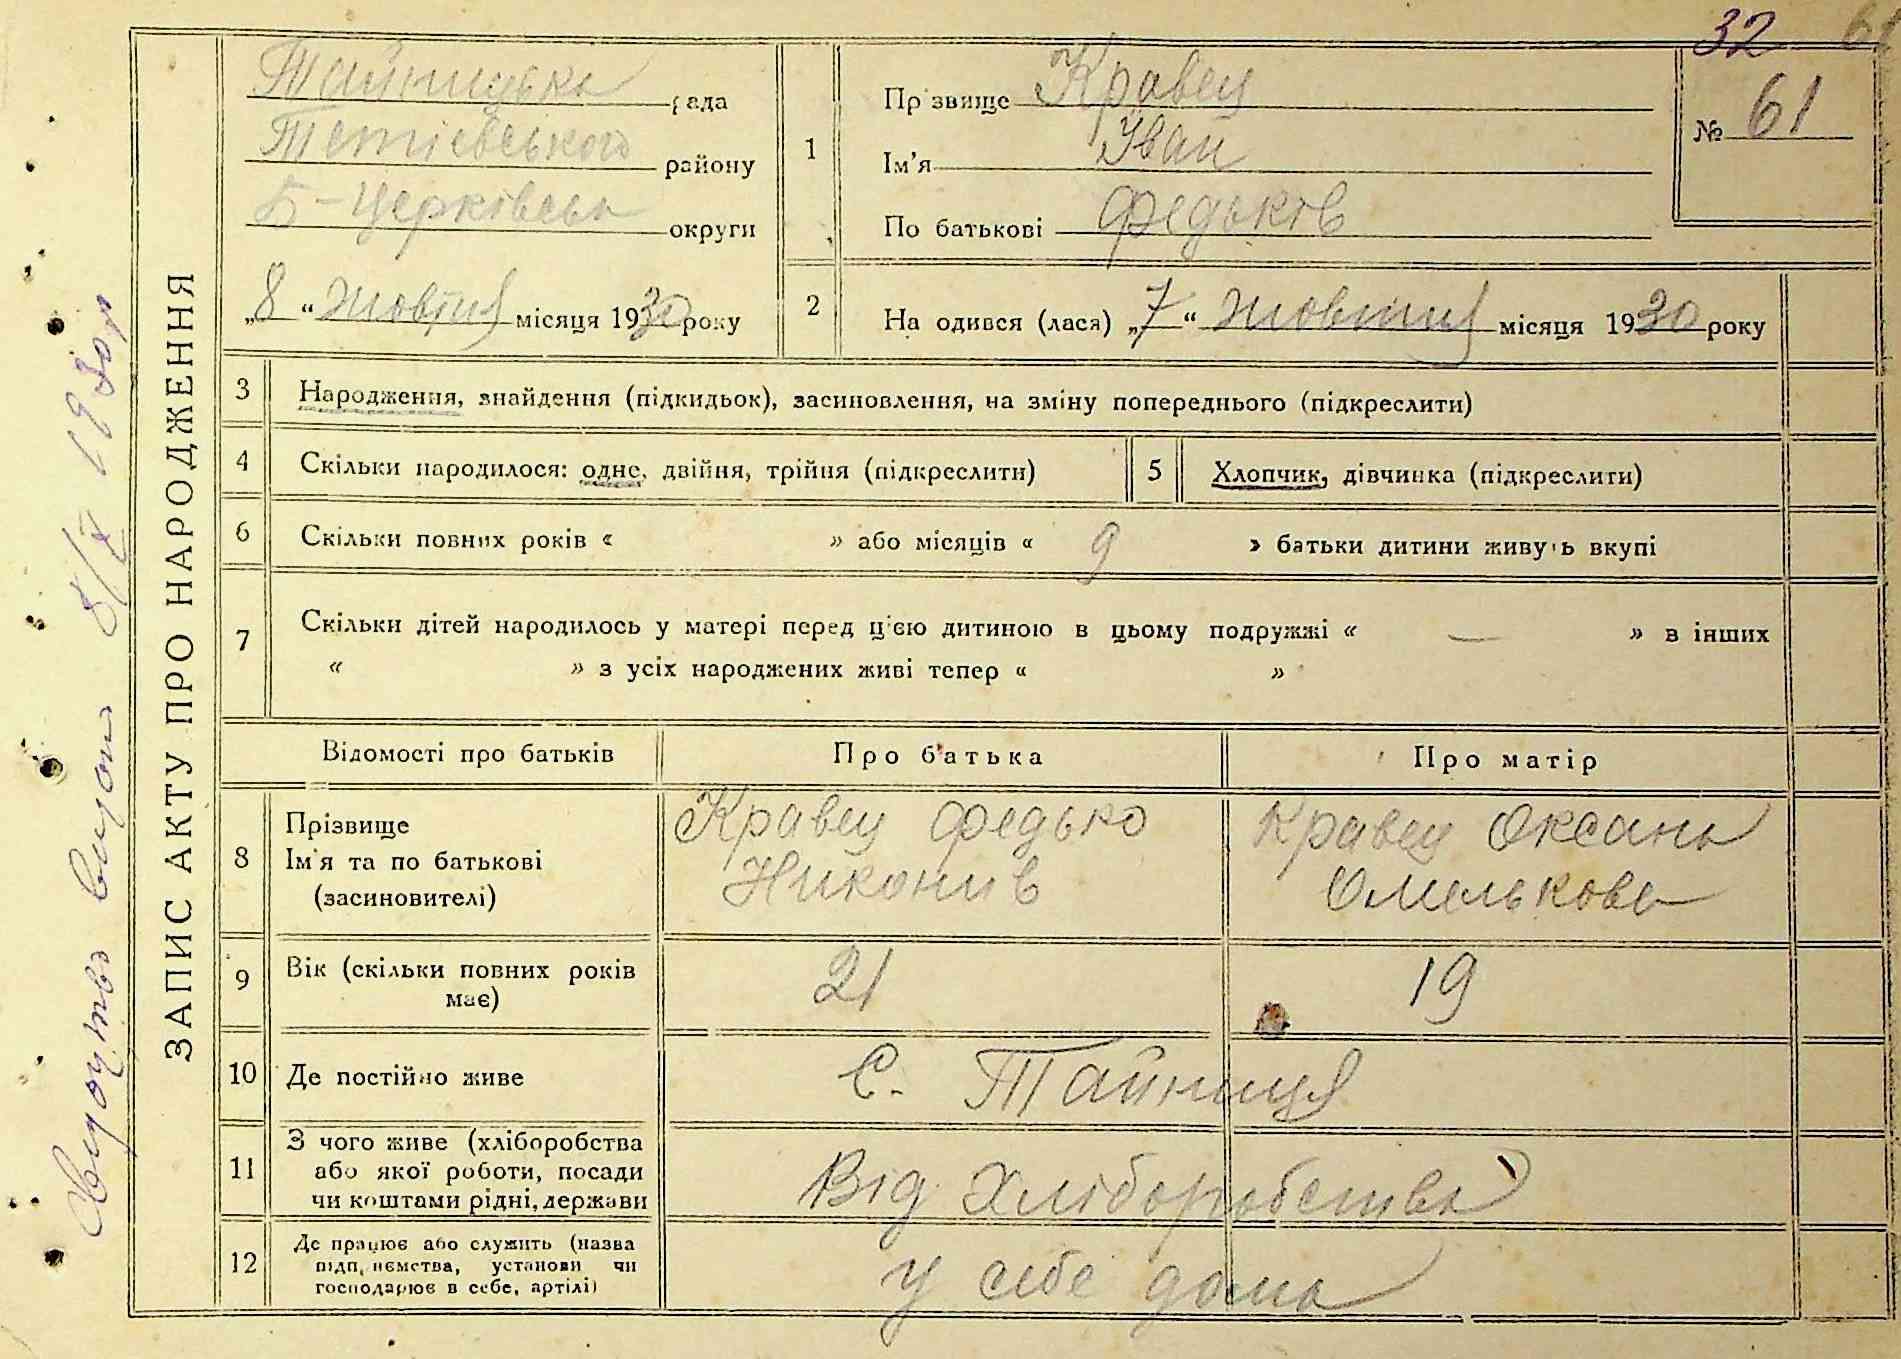 32 61
Тайницька рада
Тетієвського району
Б-Церківська округи
„8“ жовтня місяця 1930 року
1
Прізвище Кравец
Ім'я Іван
По батькові Федьків
№ 61
2
Народився (лася) „7“ жовтня місяця 1930 року
ЗАПИС АКТУ ПРО НАРОДЖЕННЯ
3 Народження, знайдення (підкидьок), засиновлення, на зміну попереднього (підкреслити)
4 Скільки народилося: одне, двійня, трійня (підкреслити)
5 Хлопчик, дівчинка (підкреслити)
6 Скільки повних років « » або місяців « 9 » батьки дитини живуть вкупі
7 Скільки дітей народилось у матері перед цією дитиною в цьому подружжі « — » в інших
« » з усіх народжених живі тепер « »
Відомості про батьків Про батька Про матір
8 Прізвище
Ім'я та по батькові
(засиновителі)
Кравец Федько
Никонив
Кравец Оксана
Омелькова
9 Вік (скільки повних років
має)
21 19
10 Де постійно живе с. Тайниця
11 З чого живе (хліборобства
або якої роботи, посади
чи коштами рідні, держави
Від хліборобства
12 Де працює або служить (назва
підприємства, установи чи
господарює в себе, артілі)
у себе дома
8/X 1930 р